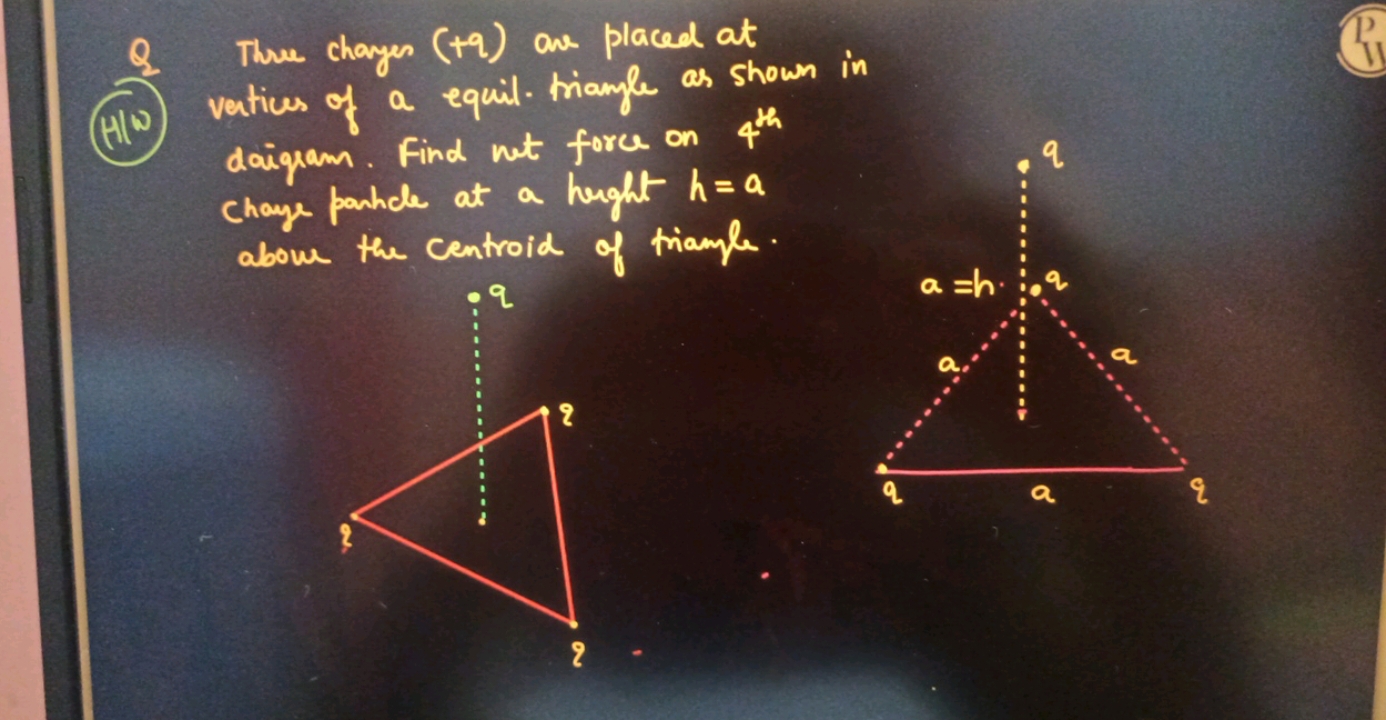 Q Three charges (+q) are placed at
H/W vertices of a equil. triangle as shown in
daigram. Find net force on 4th
charge particle at a height h = a
above the centroid of triangle.
q
q
q
q
q
a = h
q
a
a
q
a
q
PW